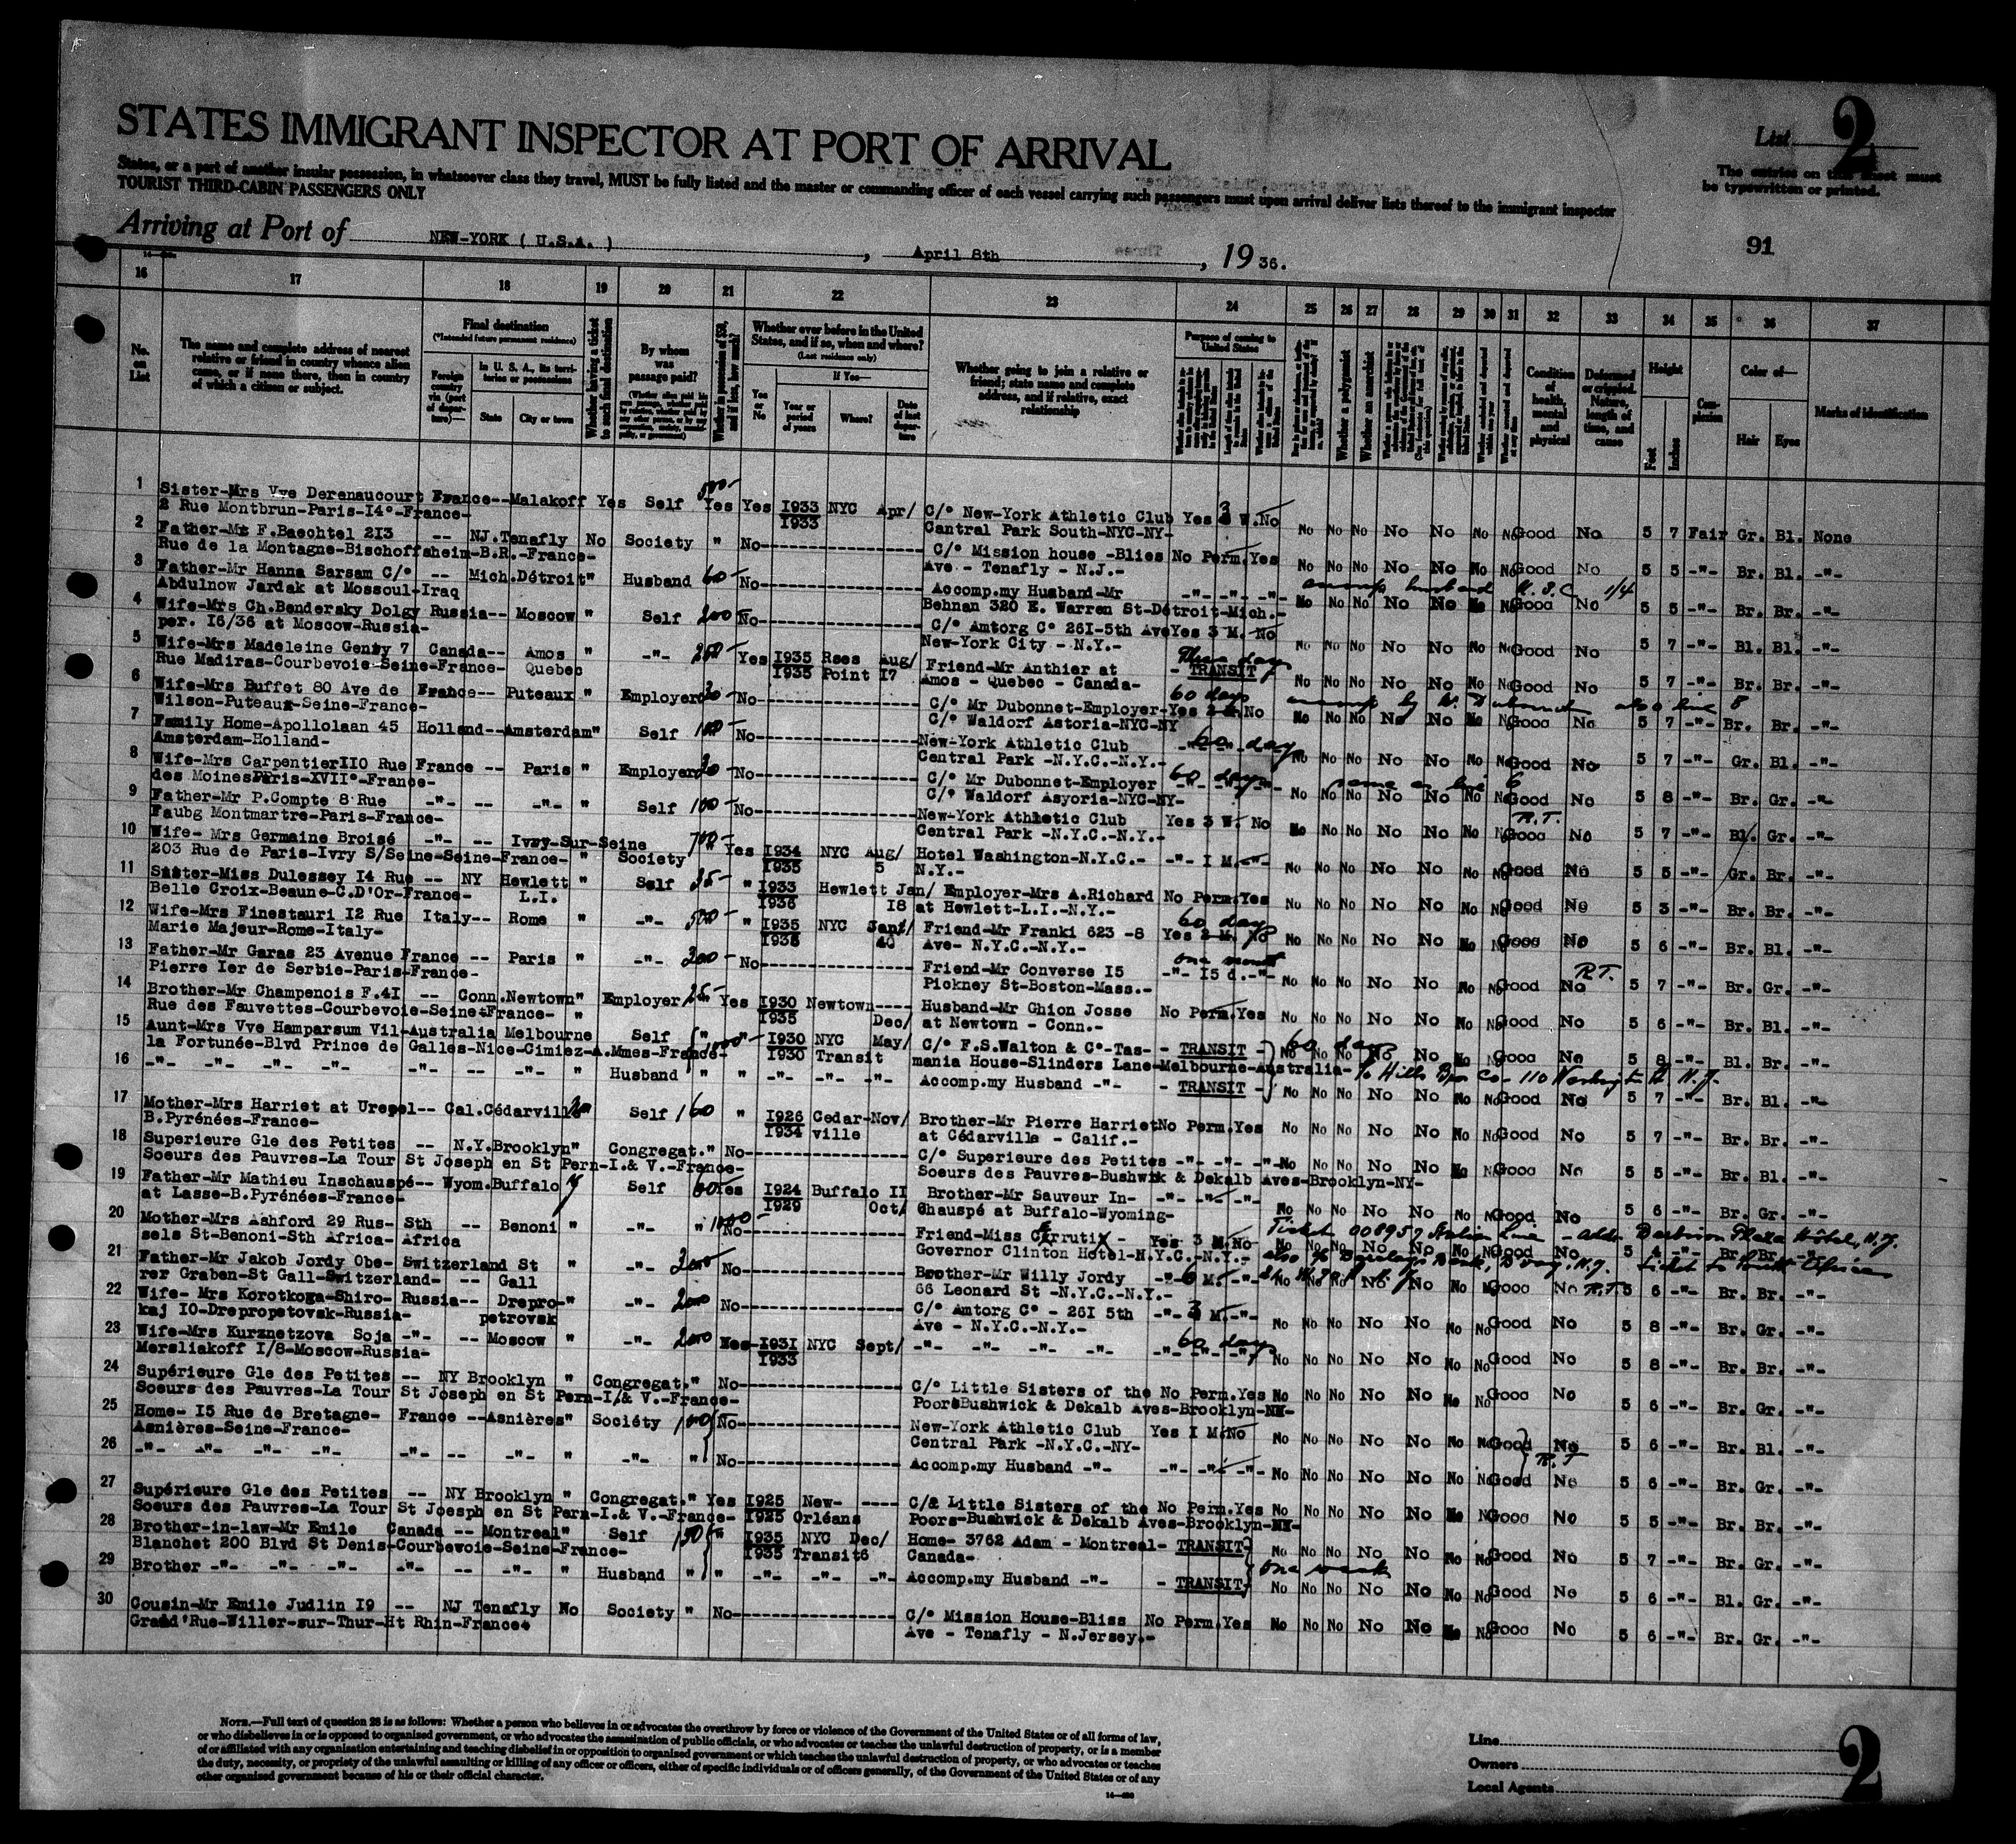 STATES IMMIGRANT INSPECTOR AT PORT OF ARRIVAL
List 2
States, or a part of another insular possession, in whatsoever class they travel, MUST be fully listed and the master or commanding officer of each vessel carrying such passengers must upon arrival deliver lists thereof to the immigrant inspector
TOURIST THIRD-CABIN PASSENGERS ONLY
The entries on this sheet must
be typewritten or printed.
Arriving at Port of NEW-YORK ( U.S.A. ), April 8th, 19 36.
91
16 17 18 19 20 21 22 23 24 25 26 27 28 29 30 31 32 33 34 35 36 37
No. on List
The name and complete address of nearest relative or friend in country whence alien came, or if none there, then in country of which a citizen or subject.
Final destination
(*Intended future permanent residence)
Foreign country via (port of departure)—
In U. S. A., its territories or possessions
State City or town
Whether having a ticket to such final destination
By whom was passage paid?
Whether in possession of $50, and if less, how much?
Whether ever before in the United States, and if so, when and where?
(Last residence only)
Yes or No
If Yes—
Year or period of years Where? Date of last departure
Whether going to join a relative or friend; state name and complete address, and if relative, exact relationship
Purpose of coming to United States
Whether a polygamist
Whether an anarchist
Condition of health, mental and physical
Deformed or crippled. Nature, length of time, and cause
Height
Feet Inches
Complexion
Color of—
Hair Eyes
Marks of identification
1 Sister-Mrs Vve Derenaucourt France--Malakoff Yes Self 500- Yes Yes 1933 NYC Apr/ C/° New-York Athletic Club Yes 3 W. No No No No No No No No Good No 5 7 Fair Gr. Bl. None
2 Rue Montbrun-Paris-14°-France- 1933 Cantral Park South-NYC-NY-
2 Father-Mr F.Baechtel 213 -- NJ.Tenafly No Society " No C/° Mission house -Blies No Perm. Yes No No No No No No No Good No 5 5 -"- Br. Bl. -"-
Rue de la Montagne-Bischoffsheim-B.R.-France- Ave - Tenafly - N.J.-
3 Father-Mr Hanna Sarsam C/° -- Mich.Détroit " Husband 60 No Accomp.my Husband-Mr -"- -"- -"- No No No No No No No Good No 5 5 -"- Br. Br. -"-
Abdulnow Jardak at Mossoul-Iraq Behnan 320 E. Warren St-Détroit-Mich.-
4 Wife-Mrs Ch.Bendersky Dolgy Russia-- Moscow " Self 200 No C/° Amtorg C° 261-5th Ave Yes 3 M. No No No No No No No No Good No 5 7 -"- Bl. Bl. -"-
per. 16/36 at Moscow-Russia- New-York City - N.Y.-
5 Wife-Mrs Madeleine Genty 7 Canada-- Amos " -"- 250 Yes 1935 Rses Aug/ Friend-Mr Anthier at - TRANSIT No No No No No No No Good No 5 7 -"- Br. Br. -"-
Rue Madiras-Courbevoie-Seine-France- Quebec 1935 Point 17 Amos - Quebec - Canada-
6 Wife-Mrs Buffet 80 Ave de France-- Puteaux " Employer No 60 days C/° Mr Dubonnet-Employer-Yes 2 M. No No No No No No No No Good No 5 7 -"- Br. Br. -"-
Wilson-Puteaux-Seine-France- C/° Waldorf Astoria-NYC-NY
7 Family Home-Apollolaan 45 Holland--Amsterdam " Self 100 No New-York Athletic Club 60 days No No No No No No No Good No 5 7 -"- Gr. Bl. -"-
Amsterdam-Holland- Central Park -N.Y.C.-N.Y.-
8 Wife-Mrs Carpentier 110 Rue France -- Paris " Employer No C/° Mr Dubonnet-Employer 60 days same as line 6 No No No No No No No Good No 5 8 -"- Br. Gr. -"-
des Moines Paris-XVII°-France- C/° Waldorf Asyoria-NYC-NY-
9 Father-Mr P.Compte 8 Rue -"- -- -"- " Self 100 No New-York Athletic Club Yes 3 W. No R.T. No No No No No No No Good No 5 7 -"- Bl. Gr. -"-
Faubg Montmartre-Paris-France- Central Park -N.Y.C.-N.Y.-
10 Wife- Mrs Germaine Broisé -"- -- Ivry-Sur-Seine 700- Yes 1934 NYC Aug/ Hotel Washington-N.Y.C.- -"- 1 M. -"- No No No No No No No Good No 5 5 -"- Gr. Br. -"-
203 Rue de Paris-Ivry S/Seine-Seine-France- " Society 1935 5 N.Y.-
11 Sister-Miss Dulessey 14 Rue -- NY Hewlett " Self 25- " 1933 Hewlett Jan/ Employer-Mrs A.Richard No Perm. Yes No No No No No No No Good No 5 3 -"- Br. Br. -"-
Belle Croix-Beaune-C.D'Or-France- L.I. 1936 18 at Hewlett-L.I.-N.Y.-
12 Wife-Mrs Finestauri 12 Rue Italy-- Rome " -"- 500- " 1935 NYC Friend-Mr Franki 623 -8 60 days Yes 2 M. No No No No No No No No Good No 5 6 -"- Br. Bl. -"-
Marie Majeur-Rome-Italy- Ave- N.Y.C.-N.Y.-
13 Father-Mr Garas 23 Avenue France -- Paris " -"- 200- No Friend-Mr Converse 15 one month -"- 15 d. -"- R.T. No No No No No No No Good No 5 7 -"- Br. Gr. -"-
Pierre Ier de Serbie-Paris-France- Pickney St-Boston-Mass.-
14 Brother-Mr Champenois F.41 -- Conn.Newtown " Employer 25- Yes 1930 Newtown---- Husband-Mr Ghion Josse No Perm. Yes No No No No No No No Good No 5 6 -"- Br. Bl. -"-
Rue des Fauvettes-Courbevoie-Seine-France- " 1935 Dec/ at Newtown - Conn.-
15 Aunt-Mrs Vve Hamparsum Vil-Australia Melbourne Self " 1000- 1930 NYC May/ C/° F.S.Walton & C°-Tas- - TRANSIT - 60 days No No No No No No No Good No 5 8 -"- Bl. Br. -"-
la Fortunée-Blvd Prince de Galles-Nice-Cimiez-A.Mmes-France- 1930 Transit mania House-Slinders Lane-Melbourne-Australia- c/o Hills Bros Co - 110 Washington St. N.Y.
16 -"- -"- -"- -"- -"- -- -"- " Husband " " -"- -"- -"- Accomp.my Husband -"- - TRANSIT - No No No No No No No Good No 5 7 -"- Br. Bl. -"-
17 Mother-Mrs Harriet at Urepel-- Cal.Cédarville Self 160 " 1926 Cedar-Nov/ Brother-Mr Pierre Harriet No Perm. Yes No No No No No No No Good No 5 7 -"- Br. Br. -"-
B.Pyrénées-France- 1934 ville at Cédarville - Calif.-
18 Superieure Gle des Petites -- N.Y.Brooklyn " Congregat. " No C/° Superieure des Petites -"- -"- -"- No No No No No No No Good No 5 5 -"- Br. Bl. -"-
Soeurs des Pauvres-La Tour St Joseph en St Pern-I.& V.-France- Soeurs des Pauvres-Bushwik & Dekalb Aves-Brooklyn-NY-
19 Father-Mr Mathieu Inschauspé-- Wyom.Buffalo Self 60 Yes 1924 Buffalo 11 Brother-Mr Sauveur In- -"- -"- -"- No No No No No No No Good No 5 6 -"- Br. Gr. -"-
at Lasse-B.Pyrénées-France- 1929 Oct/ Chauspé at Buffalo-Wyoming-
20 Mother-Mrs Ashford 29 Rus- Sth -- Benoni " -"- " 1000- No Friend-Miss Yes 3 M. No Ticket 008957 Italian Line - also Barbizon Plaza Hotel, N.Y. No No No No No No No Good No 5 4 -"- Br. Br. -"-
sels St-Benoni-Sth Africa- Africa Governor Clinton Hotel-N.Y.C.-N.Y.- also c/o Barclays Bank, Bway, N.Y. ticket to South Africa
21 Father-Mr Jakob Jordy Obe- Switzerland St " -"- No Brother-Mr Willy Jordy -"- 6 M. -"- No No No No No No No Good No R.T. 5 6 -"- Br. Br. -"-
rer Graben-St Gall-Switzerland- -- Gall 66 Leonard St -N.Y.C.-N.Y.-
22 Wife- Mrs Korotkoga-Shiro- Russia-- Drepro- " -"- 200 No C/° Amtorg C° - 261 5th -"- 3 M. -"- No No No No No No No Good No 5 8 -"- Br. Gr. -"-
kaj 10-Drepropetovsk-Russia- petrovsk Ave - N.Y.C.-N.Y.-
23 Wife-Mrs Kurznetzova Soja -"- -- Moscow " -"- 200 Yes-1931 NYC Sept/ -"- -"- -"- -"- -"- 60 days No No No No No No No Good No 5 8 -"- Br. Br. -"-
Mersliakoff 1/8-Moscow-Russia- 1933
24 Supérieure Gle des Petites -- NY Brooklyn " Congregat. " No C/° Little Sisters of the No Perm. Yes No No No No No No No Good No 5 6 -"- Br. Gr. -"-
Soeurs des Pauvres-La Tour St Joseph en St Pern-I/& V.-France- Poor Bushwick & Dekalb Aves-Brooklyn-NY-
25 Home- 15 Rue de Bretagne- France --Asnières " Société 100 No New-York Athletic Club Yes 1 M. No No No No No No No No Good No 5 6 -"- Br. Bl. -"-
Asnières-Seine-France- Central Park -N.Y.C.-NY- R.T
26 -"- -"- -"- -"- -"- -- -"- " -"- " No Accomp.my Husband -"- -"- -"- -"- No No No No No No No Good No 5 6 -"- Br. Gr. -"-
27 Supérieure Gle des Petites -- NY Brooklyn " Congregat. " Yes 1925 New- ---- C/& Little Sisters of the No Perm. Yes No No No No No No No Good No 5 5 -"- Br. Br. -"-
Soeurs des Pauvres-La Tour St Joesph en St Pern-I.& V.-France- 1925 Orléans Poors-Bushwick & Dekalb Aves-Brooklyn-NY-
28 Brother-in-law-Mr Emile Canada -- Montreal " Self 150 " 1935 NYC Dec/ Home- 3762 Adam - Montreal- TRANSIT No No No No No No No Good No 5 7 -"- Br. Gr. -"-
Blanchet 200 Blvd St Denis-Courbevoie-Seine-France- 1935 Transit 6 Canada- one week
29 Brother -"- -"- -"- -"- -- -"- " Husband " " -"- -"- -"- Accomp.my Husband -"- - TRANSIT- No No No No No No No Good No 5 6 -"- Bl. Gr. -"-
30 Cousin-Mr Emile Judlin 19 -- NJ Tenafly No Society " No C/° Mission House-Bliss No Perm. Yes No No No No No No No Good No 5 6 -"- Br. Gr. -"-
Grand'Rue-Willer-sur-Thur-Ht Rhin-France- Ave - Tenafly - N.Jersey.-
NOTE.—Full text of question 28 is as follows: Whether a person who believes in or advocates the overthrow by force or violence of the Government of the United States or of all forms of law,
or who disbelieves in or is opposed to organised government, or who advocates the assassination of public officials, or who advocates or teaches the unlawful destruction of property, or is a member
of or affiliated with any organisation entertaining and teaching disbelief in or opposition to organised government or which teaches the unlawful destruction of property, or who advocates or teaches
the duty, necessity, or propriety of the unlawful assaulting or killing of any officer or officers, either of specific individuals or of officers generally, of the Government of the United States or of any
other organised government because of his or their official character.
Line
Owners
Local Agents
2